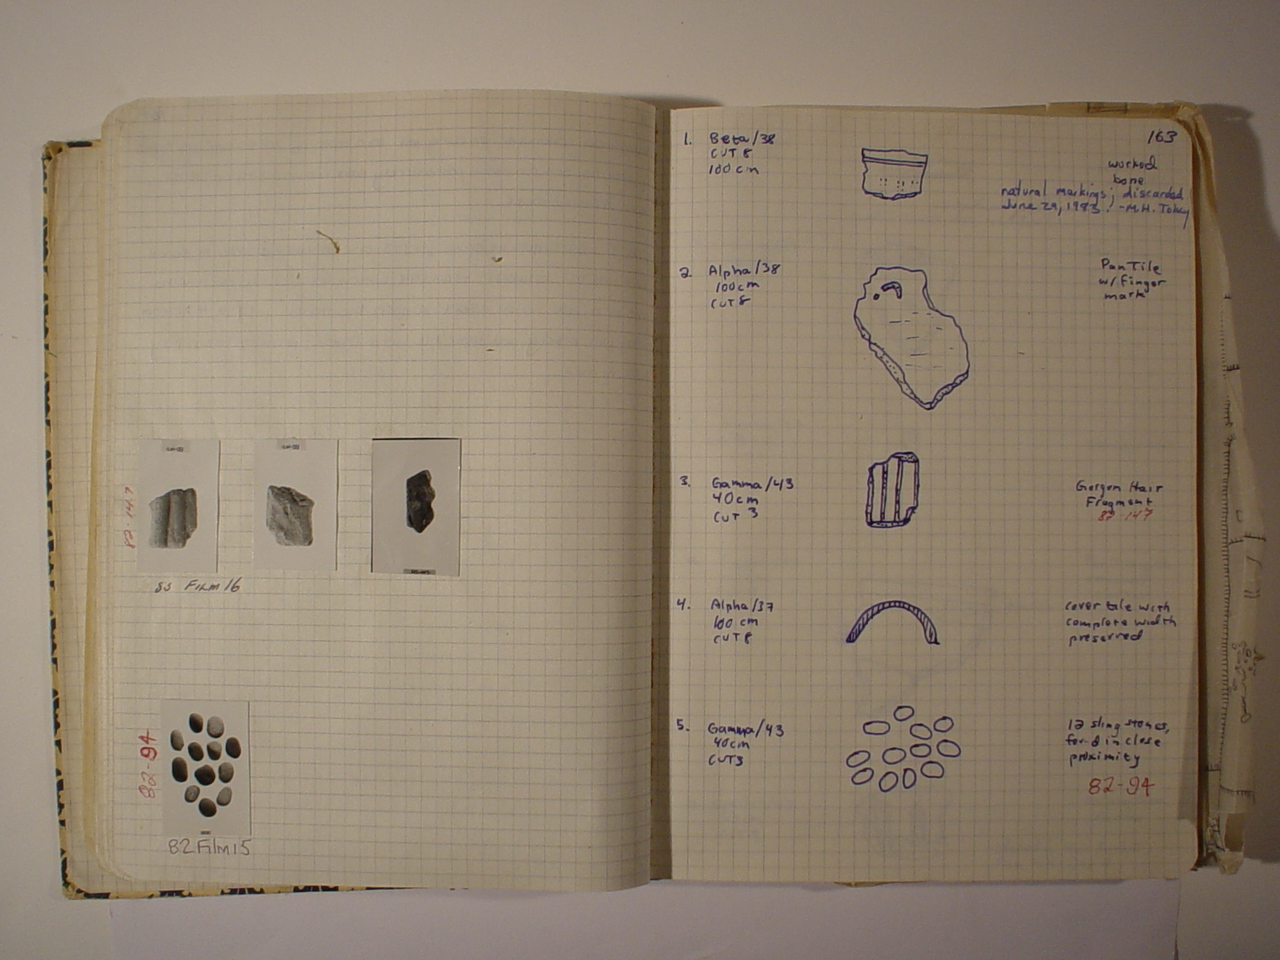 82-147
SS Film 16
82-94
82 Film 15
163
1. Beta/38
CUT 8
100 cm
worked
bone
natural markings; discarded
June 29, 1983. -M.H. Tobey
2. Alpha/38
100cm
CUT 8
Pan Tile
w/ Finger
mark
3. Gamma/43
40cm
CUT 3
Gorgon Hair
Fragment
82-147
4. Alpha/37
100 cm
CUT 8
cover tile with
complete width
preserved
5. Gamma/43
40cm
CUT 3
12 sling stones,
found in close
proximity
82-94